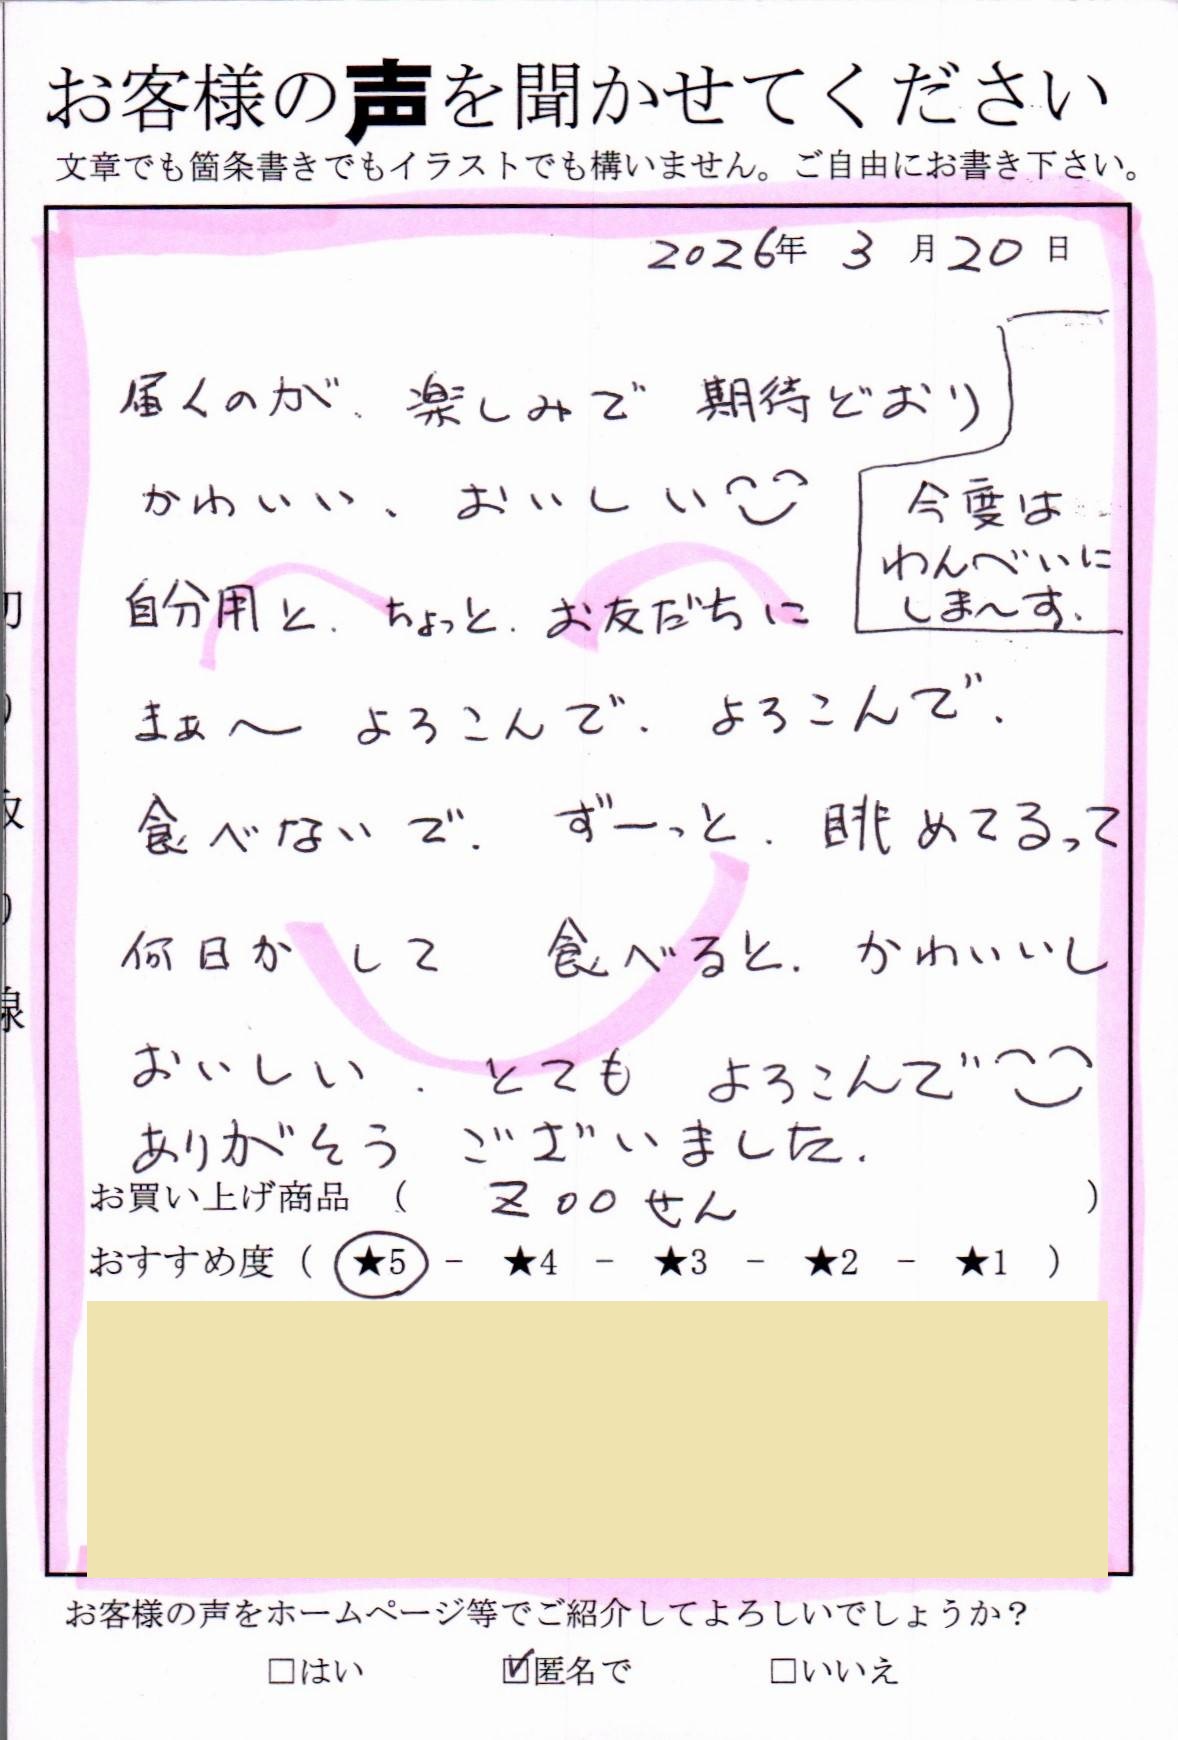 お客様の声を聞かせてください
文章でも箇条書きでもイラストでも構いません。ご自由にお書き下さい。
2026年 3月20日
届くのが、楽しみで 期待どおり
かわいい、おいしい
自分用と、ちょっと、お友だちに
まぁ〜 よろこんで、よろこんで、
食べないで、ずーっと、眺めてるって
何日か して 食べると、かわいいし
おいしい、とても よろこんで
ありがとう ございました。
今度は
わんべいに
しま〜す。
お買い上げ商品 ( ZOOせん )
おすすめ度 ( ★5 - ★4 - ★3 - ★2 - ★1 )
お客様の声をホームページ等でご紹介してよろしいでしょうか？
□はい ☑匿名で □いいえ